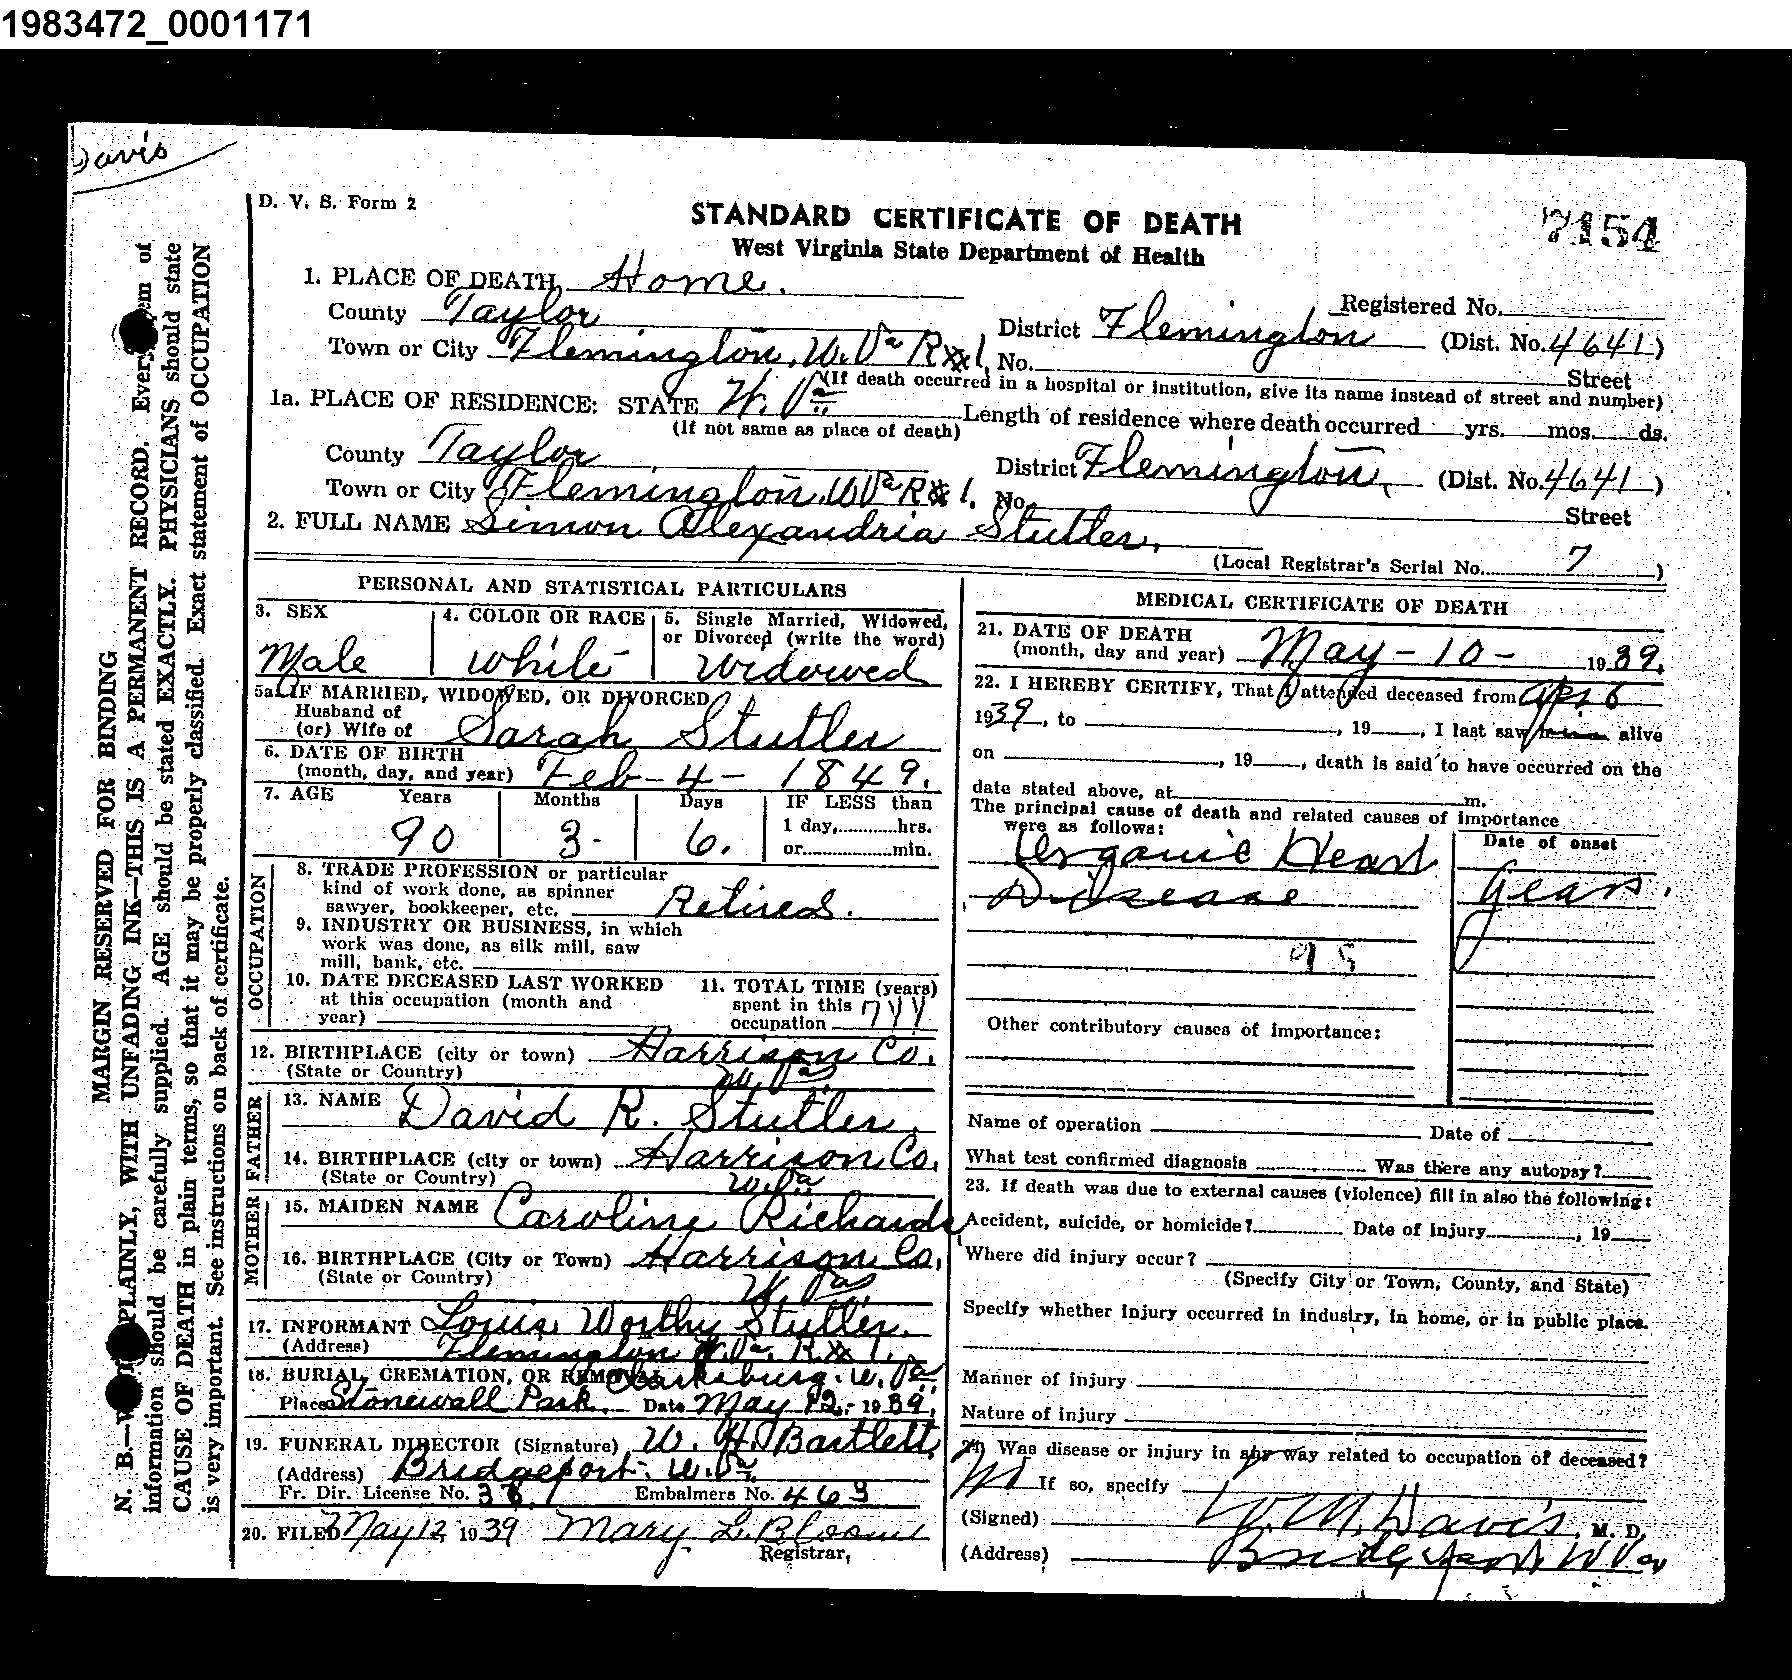 1983472_0001171
Davis
D. V. S. Form 2
STANDARD CERTIFICATE OF DEATH
West Virginia State Department of Health
7154
MARGIN RESERVED FOR BINDING
N. B.— PLAINLY, WITH UNFADING INK—THIS IS A PERMANENT RECORD. Every item of
information should be carefully supplied. AGE should be stated EXACTLY. PHYSICIANS should state
CAUSE OF DEATH in plain terms, so that it may be properly classified. Exact statement of OCCUPATION
is very important. See instructions on back of certificate.
1. PLACE OF DEATH Home.
Registered No.
County Taylor
District Flemington (Dist. No. 4641)
Town or City Flemington, W. Va R 1, No. Street
(If death occurred in a hospital or institution, give its name instead of street and number)
1a. PLACE OF RESIDENCE: STATE W. Va
(If not same as place of death)
Length of residence where death occurred yrs. mos. ds.
County Taylor
District Flemington, (Dist. No. 4641)
Town or City Flemington, W Va R 1. No. Street
2. FULL NAME Simon Alexandria Stutler,
(Local Registrar's Serial No. 7)
PERSONAL AND STATISTICAL PARTICULARS
3. SEX
Male
4. COLOR OR RACE
White
5. Single Married, Widowed,
or Divorced (write the word)
Widowed
5a. IF MARRIED, WIDOWED, OR DIVORCED
Husband of
(or) Wife of Sarah Stutler
6. DATE OF BIRTH
(month, day, and year) Feb-4-1849.
7. AGE Years Months Days IF LESS than
90 3. 6. 1 day, hrs.
or min.
OCCUPATION
8. TRADE PROFESSION or particular
kind of work done, as spinner
sawyer, bookkeeper, etc. Retired.
9. INDUSTRY OR BUSINESS, in which
work was done, as silk mill, saw
mill, bank, etc.
10. DATE DECEASED LAST WORKED
at this occupation (month and
year)
11. TOTAL TIME (years)
spent in this
occupation
12. BIRTHPLACE (city or town) Harrison Co.
(State or Country) W. Va
FATHER
13. NAME David R. Stutler.
14. BIRTHPLACE (city or town) Harrison Co.
(State or Country) W. Va
MOTHER
15. MAIDEN NAME Caroline Richards
16. BIRTHPLACE (City or Town) Harrison Co,
(State or Country) W. Va
17. INFORMANT Louis Worthy Stutler.
(Address) Flemington W. Va. R. 1.
18. BURIAL, CREMATION, OR REMOVAL Clarksburg, W. Va.
Place Stonewall Park. Date May 12,- 1939.
19. FUNERAL DIRECTOR (Signature) W. H. Bartlett
(Address) Bridgeport, W. Va.
Fr. Dir. License No. 38. Embalmers No. 463
20. FILED May 12, 1939 Mary L. Bloom
Registrar,
MEDICAL CERTIFICATE OF DEATH
21. DATE OF DEATH
(month, day and year) May-10- 1939.
22. I HEREBY CERTIFY, That I attended deceased from Apr 6
1939, to , 19 , I last saw alive
on , 19 , death is said to have occurred on the
date stated above, at m.
The principal cause of death and related causes of importance
were as follows: Date of onset
Organic Heart
Disease Years.
95
Other contributory causes of importance:
Name of operation Date of
What test confirmed diagnosis Was there any autopsy?
23. If death was due to external causes (violence) fill in also the following:
Accident, suicide, or homicide? Date of injury , 19
Where did injury occur?
(Specify City or Town, County, and State)
Specify whether injury occurred in industry, in home, or in public place.
Manner of injury
Nature of injury
24. Was disease or injury in any way related to occupation of deceased?
No If so, specify
(Signed) W. M. Davis, M. D.
(Address) Bridgeport W Va